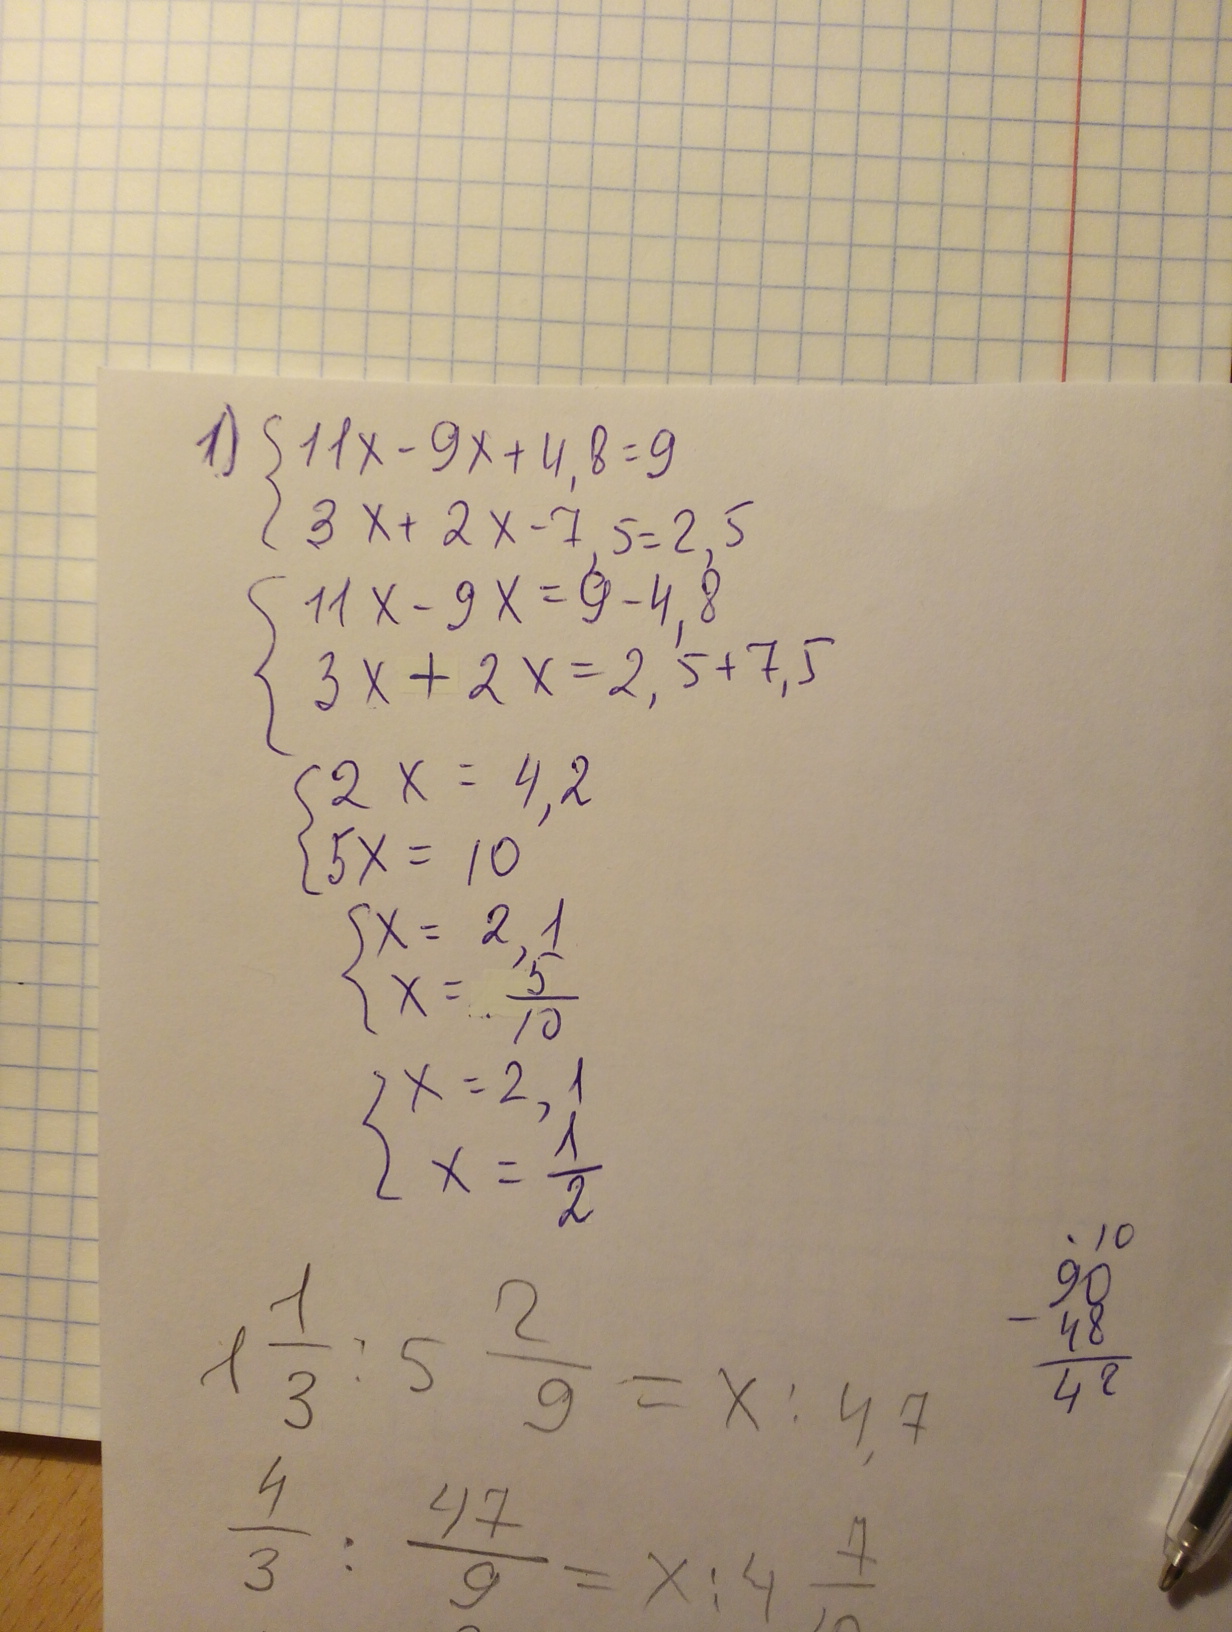 1) { 11x - 9x + 4,8 = 9
3x + 2x - 7,5 = 2,5
{ 11x - 9x = 9 - 4,8
3x + 2x = 2,5 + 7,5
{ 2x = 4,2
5x = 10
{ x = 2,1
x = 5/10
{ x = 2,1
x = 1/2
·10
90
- 48
42
1 1/3 : 5 2/9 = x : 4,7
4/3 : 47/9 = x : 4 7/10